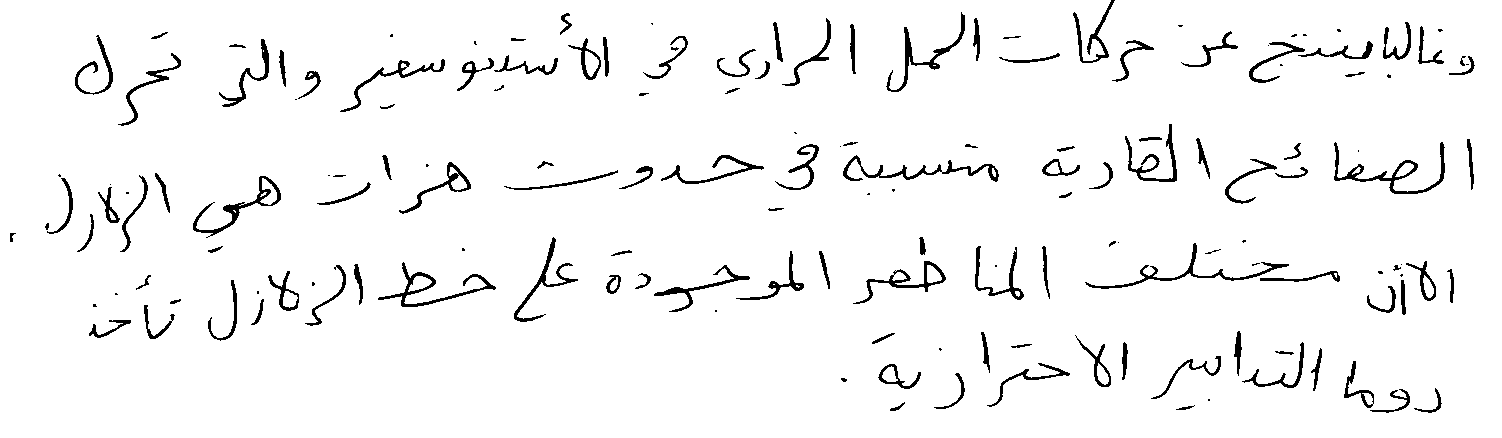 وغالبا ينتج عن حركات الحمل الحراري في الأستينوسفير والتي تحرك
الصفائح القارية متسببة في حدوث هزات هي الزلازل .
الآن مختلف المناطق الموجودة على خط الزلازل تأخذ
دوما التدابير الاحترازية .